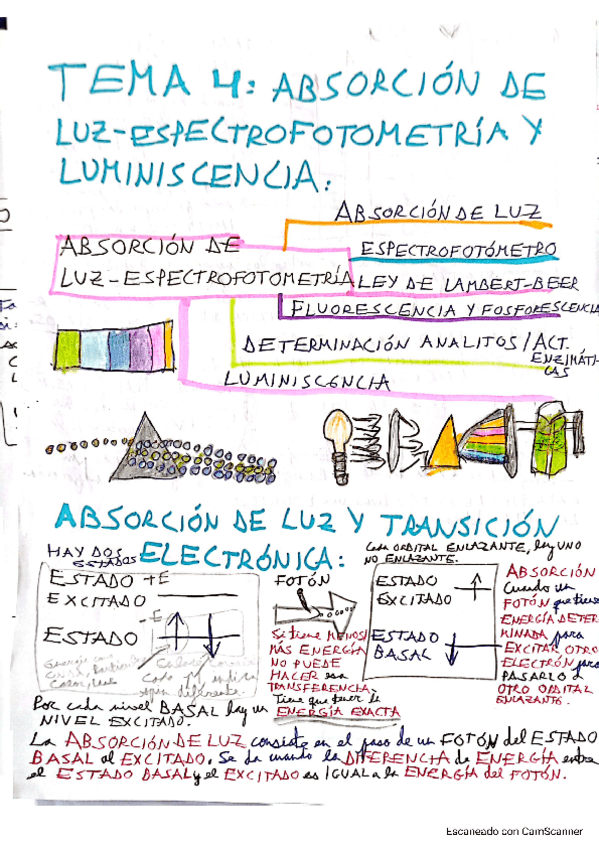 TEMA 4: ABSORCIÓN DE
LUZ-ESPECTROFOTOMETRÍA Y
LUMINISCENCIA:
ABSORCIÓN DE LUZ
ABSORCIÓN DE
LUZ-ESPECTROFOTOMETRÍA
ESPECTROFOTÓMETRO
LEY DE LAMBERT-BEER
FLUORESCENCIA Y FOSFORESCENCIA
DETERMINACIÓN ANALITOS/ACT.
ENZIMÁTI-
CAS
LUMINISCENCIA
ABSORCIÓN DE LUZ Y TRANSICIÓN
ELECTRÓNICA:
HAY DOS
ESTADOS
Cada ORBITAL ENLAZANTE, hay UNO
NO ENLAZANTE.
ESTADO +E
EXCITADO
ESTADO
-E
FOTÓN
Si tiene MENOS/
MÁS ENERGÍA
NO PUEDE
HACER esa
TRANSFERENCIA.
Tiene que tener la
ENERGÍA EXACTA
ESTADO
EXCITADO
ESTADO
BASAL
ABSORCIÓN
Cuando un
FOTÓN que tiene
ENERGÍA DETER
MINADA para
EXCITAR OTRO
ELECTRÓN para
PASARLO a
OTRO ORBITAL
ENLAZANTE.
Por cada nivel BASAL hay un
NIVEL EXCITADO.
La ABSORCIÓN DE LUZ consiste en el paso de un FOTÓN del ESTADO
BASAL al EXCITADO. Se da cuando la DIFERENCIA de ENERGÍA entre
el ESTADO BASAL y el EXCITADO es IGUAL a la ENERGÍA del FOTÓN.
Escaneado con CamScanner